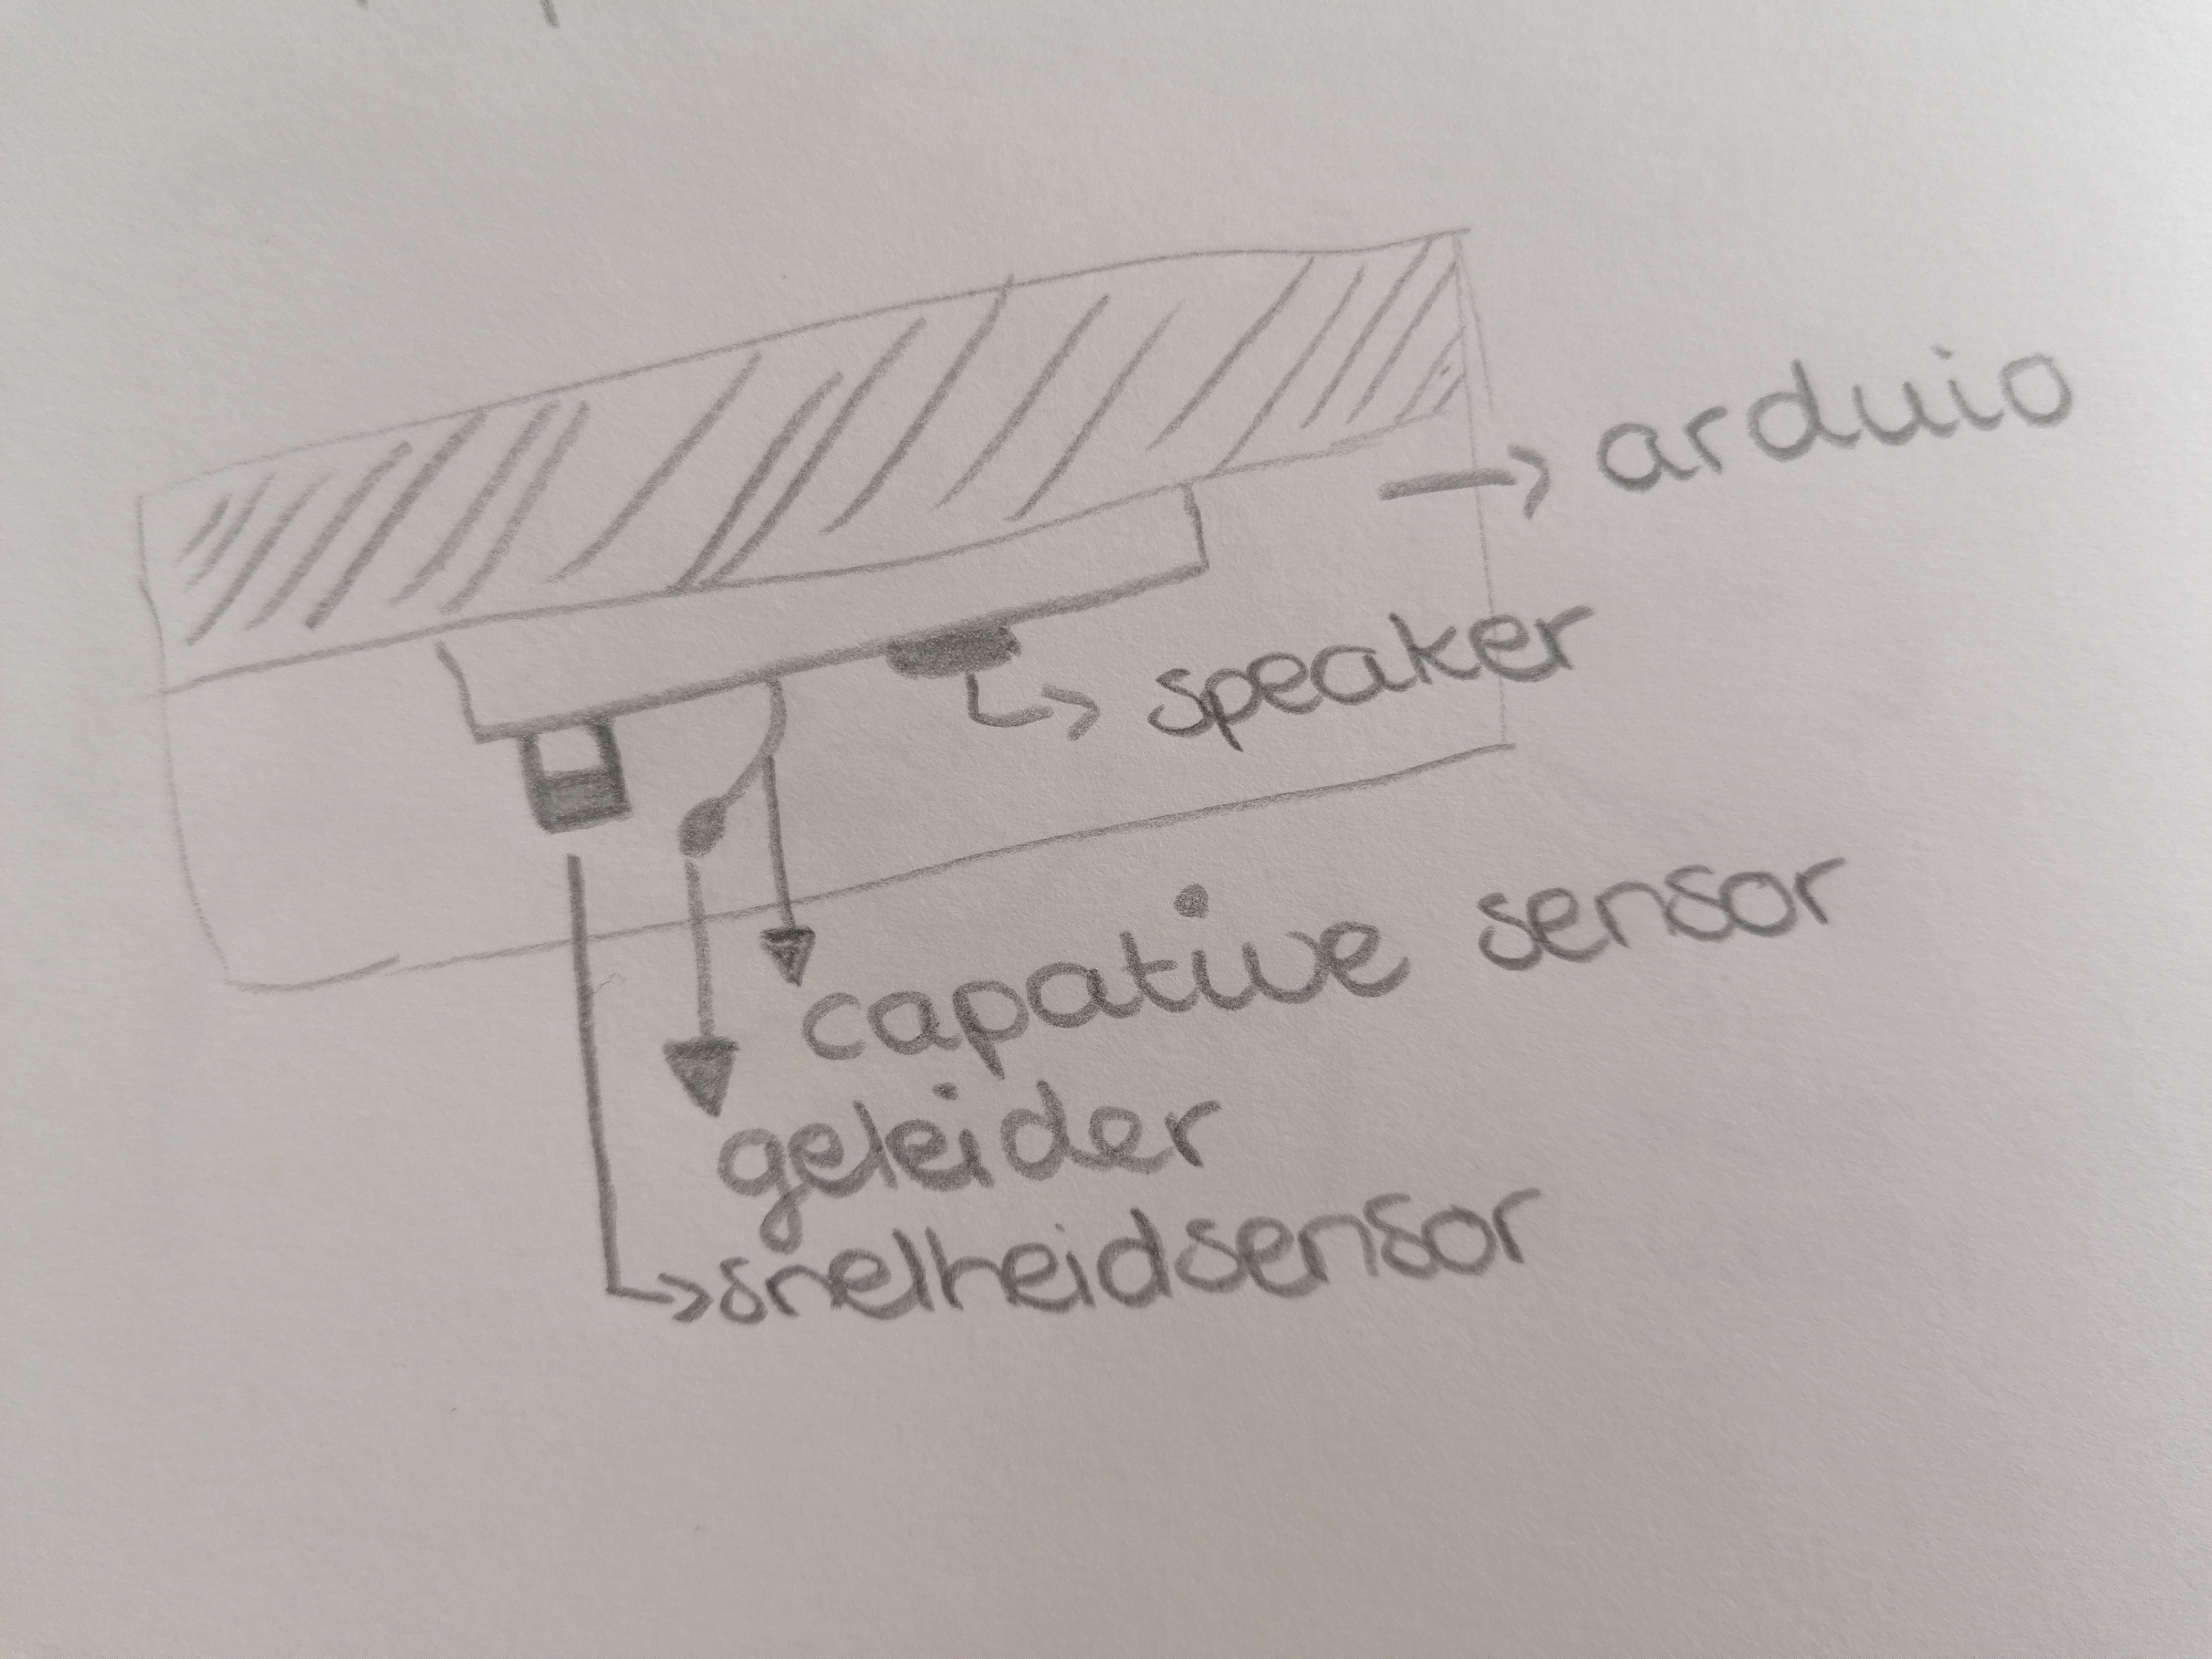 arduio
speaker
capative sensor
geleider
snelheidsensor